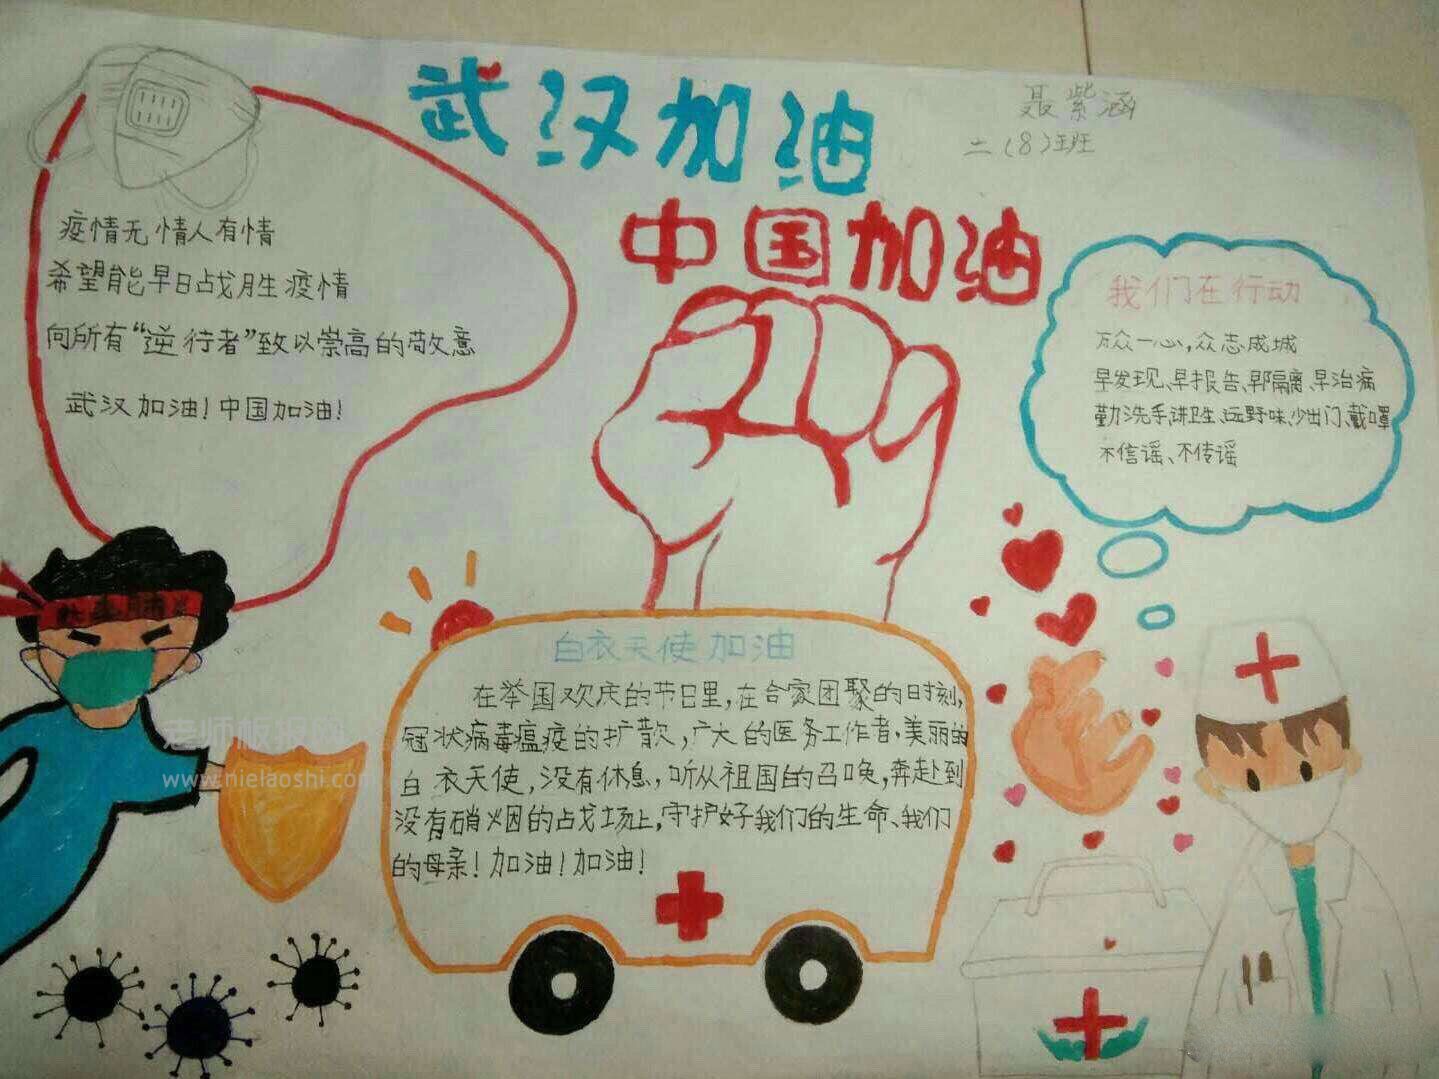 武汉加油
聂紫涵
二(8)班
中国加油
疫情无情人有情
希望能早日战胜疫情
向所有“逆行者”致以崇高的敬意
武汉加油!中国加油!
我们在行动
万众一心,众志成城
早发现、早报告、早隔离、早治病
勤洗手,讲卫生、远野味、少出门、戴口罩
不信谣、不传谣
白衣天使加油
在举国欢庆的节日里,在合家团聚的时刻,
冠状病毒瘟疫的扩散,广大的医务工作者,美丽的
白衣天使,没有休息,听从祖国的召唤,奔赴到
没有硝烟的战场上,守护好我们的生命、我们
的母亲!加油!加油!
老师板报网
www.nielaoshi.com